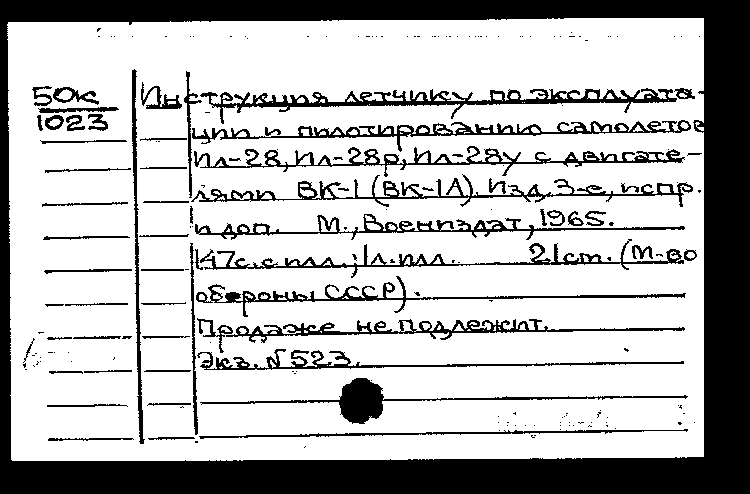 50к
1023
Инструкция летчику по эксплуата-
ции и пилотированию самолетов
Ил-28, Ил-28р, Ил-28у с двигате-
лями ВК-1 (ВК-1А). Изд. 3-е, испр.
и доп. М., Воениздат, 1965.
147с. с илл.; 1л. илл. 21ст. (М-во
обороны СССР).
Продаже не подлежит.
Экз. № 523.